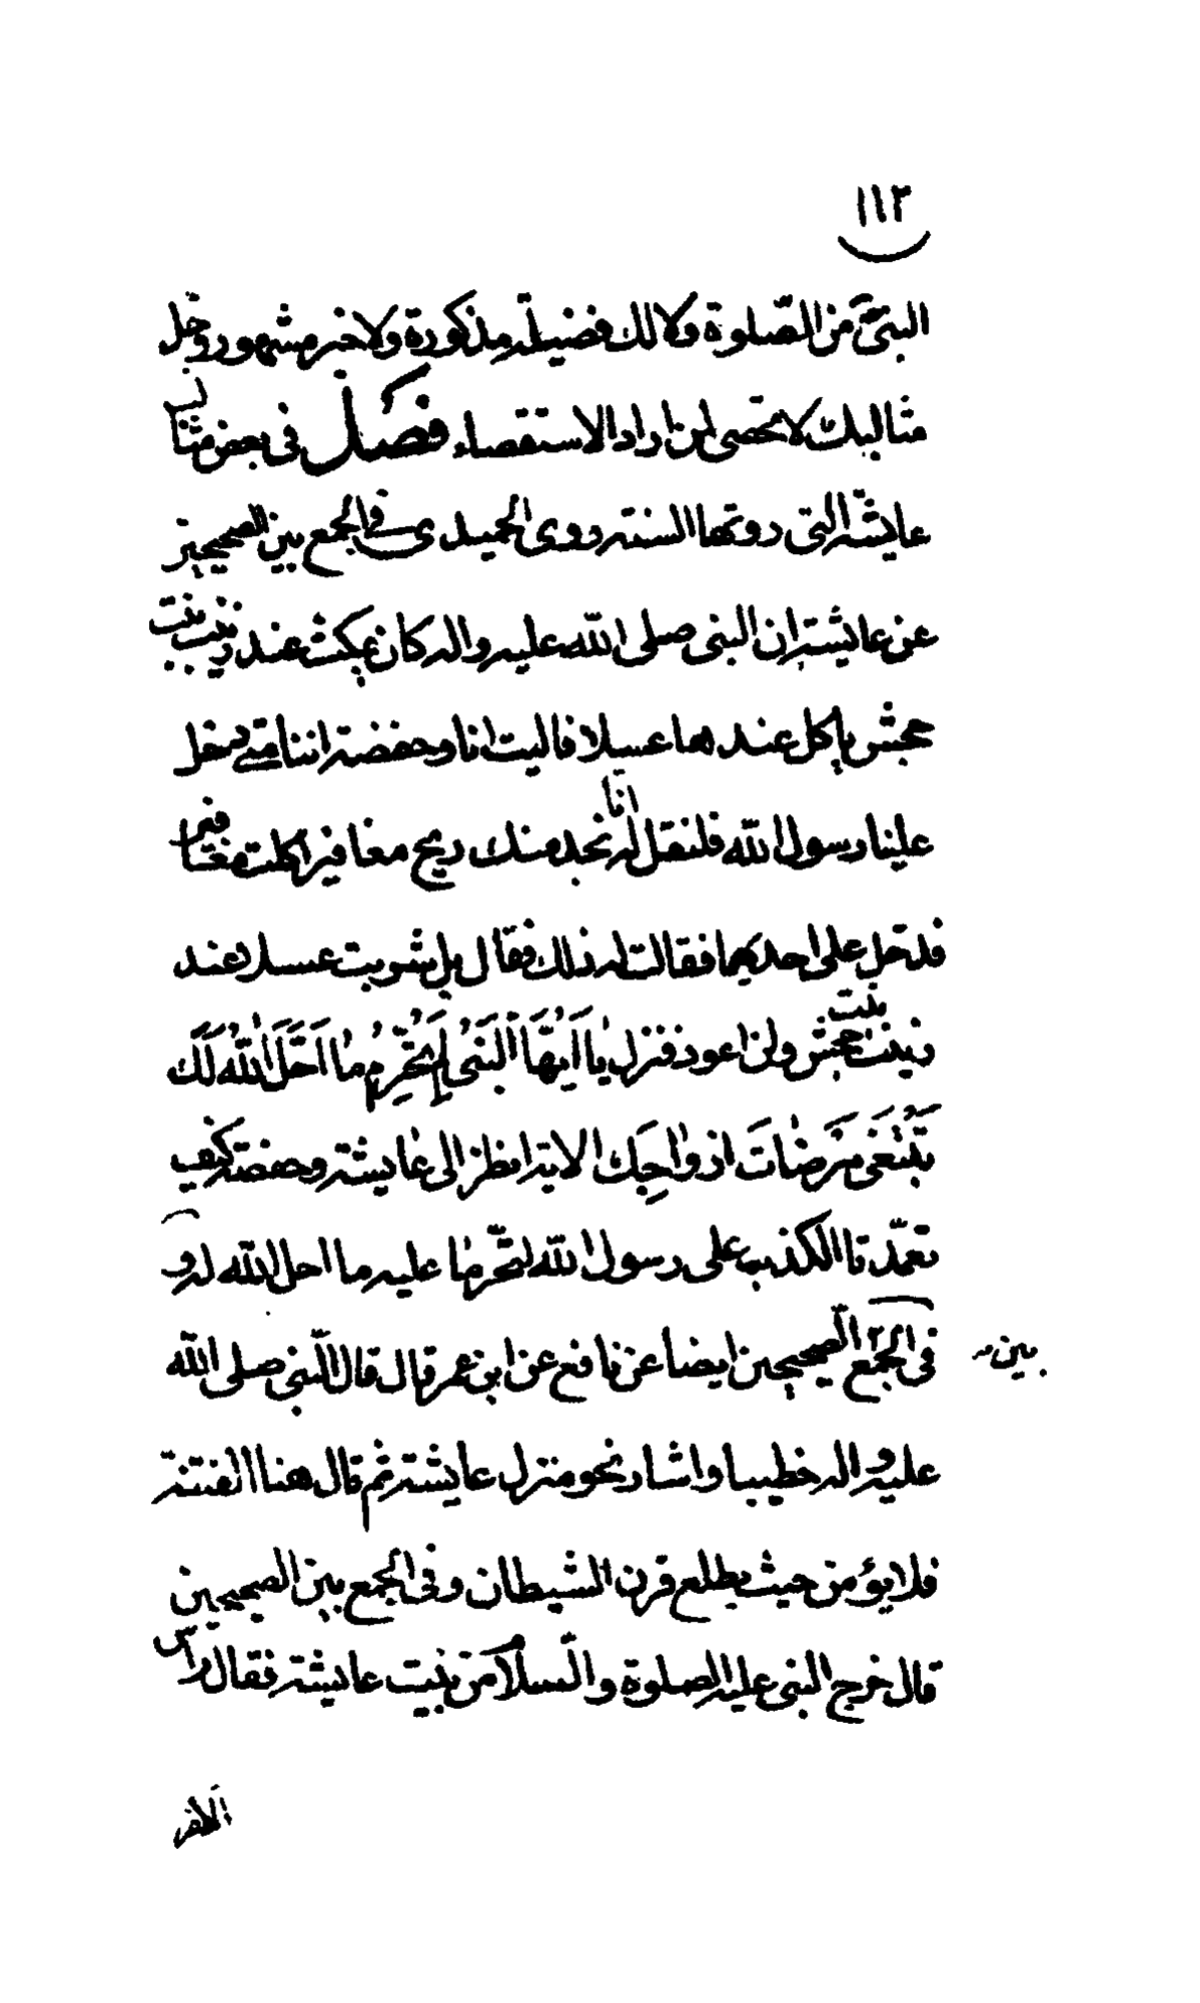 ١١٣
النبیّ من الصّلوة ولا لك فضیلة مذكورة ولا خبر مشهور وجلّ
مثالبك لا تحصی لمن اراد الاستقصاء فصل فی بعض مثالب
عایشة التی روتها السنة روی الحمیدی فی الجمع بین الصحیحین
عن عایشة ان النبی صلی اللّه علیه واله كان یمكث عند زینب بنت
حجش یاكل عندها عسلا فالیت انا وحفضة اننا متی دخل
علینا رسول اللّه فلنقل له انا نجد منك ریح مغافیر اكلت مغافیر
فدخل علی احدیهما فقالت له ذلك فقال بل شربت عسلا عند
زینب بنت حجش ولن اعود فنزل یٰا اَیُّهَا اَلنَّبیُ لِمَ تُحَرِّمُ مٰا اَحَلَّ اَللّٰهُ لَكَ
تَبْتَغٖی مَرضٰاتَ ازوٰاجِك الایة انظر الی عٰایشة وحفصة كیف
تعمّدتا الكذب علی رسول اللّه لتحّرمٰا علیه ما احل اللّه له و
فی الجمع الصحیحین ایضا عن نافع عن ابن عمر قال قال النبی صلی اللّه
بین
علیه واله خطیبا واشار نحو منزل عایشة ثم قال هنا الفتنة
فلا یؤمن حیث یطلع قرن الشیطان وفی الجمع بین الصحیحین
قال خرج النبی علیه الصلوة والسلام من بیت عایشة فقال رأس
الكفر